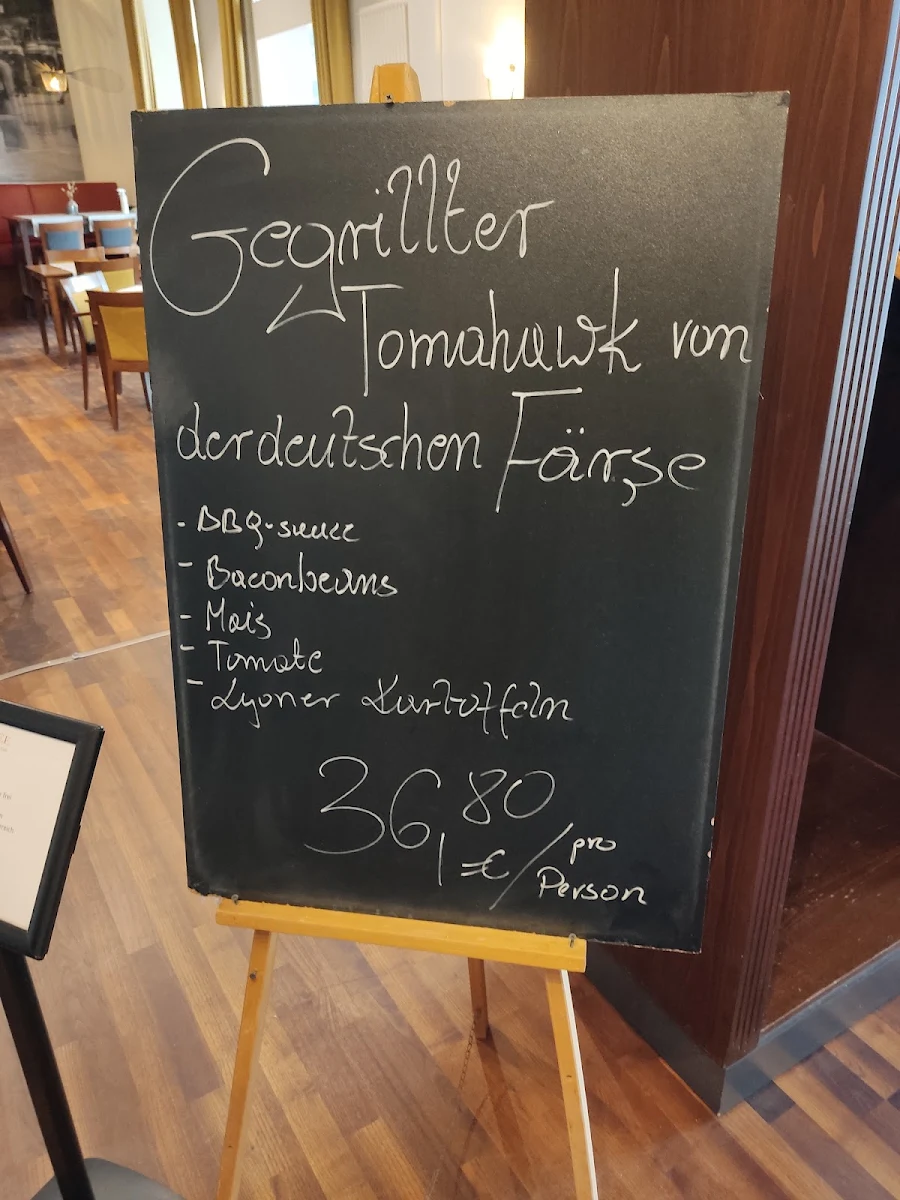 Gegrillter
Tomahawk von
der deutschen Färse
- BBQ-sauce
- Baconbeans
- Mais
- Tomate
- Lyoner Kartoffeln
36,80
€/pro
Person